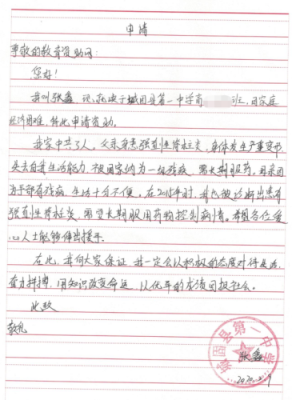 申请
尊敬的教育资助网：
您好！
我叫张鑫，现就读于城固县第一中学高 班，因家庭
经济困难，特此申请资助。
我家中共3人，父亲身患强直性脊柱炎，身体发生严重变形，
丧失自主生活能力，被国家纳为一级残疾，需长期服药，母亲因
手部有残疾，生活十分不便，在2018年时，我也被诊断出患有
强直性脊柱炎，需要长期服用药物控制病情。希望各位爱
心人士能够伸出援手。
在此，我向大家保证，我一定会以积极的态度对待生活，
奋力拼搏，用知识改变命运，以优异的成绩回报社会。
此致
敬礼
张鑫
城固县第一中学